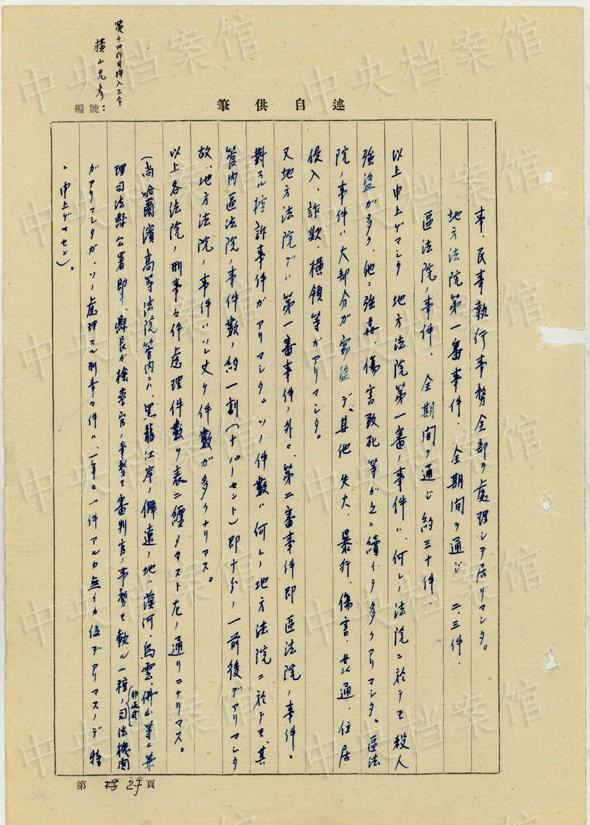 述自供筆
編號：
第十四行目挿入三字
横山光彦
事、民事執行事務全部ヲ処理シテ居リマシタ。
地方法院第一審事件、全期間ヲ通ジ 二、三件、
區法院ノ事件、全期間ヲ通ジ 約三十件、
以上申上ゲマシタ 地方法院第一審ノ事件ハ、何レノ法院ニ於テモ殺人
強盗ガ多ク、他ニ強姦、傷害致死等ガ之ニ續イテ多クアリマシタ。區法
院ノ事件ハ大部分ガ窃盗デ、其他 失火、暴行、傷害、姦通、住居
侵入、詐欺、横領等ガアリマシタ。
又地方法院デハ第一審事件ノ外ニ、第二審事件即區法院ノ事件ニ
對スル控訴事件ガアリマシタ。ソノ件數ハ何レノ地方法院ニ於テモ、其
管内區法院ノ事件數ノ約一割（十パーセント）即十分ノ一前後デアリマシタ
故、地方法院ノ事件ハソレ丈ケ件數ガ多クナリマス。
以上各法院ノ刑事々件處理件數ヲ表ニ纏メマスト左ノ通リニナリマス。
（尚哈爾濱高等法院管内ニハ、黒龍江岸ノ僻遠ノ地ニ漠河、烏雲、佛山等ニ兼
理司法縣公署即、縣長ガ検察官ノ事務モ審判官ノ事務モ執ル一種ノ非正式司法機関
ガアリマシタガ、ソノ處理スル刑事々件ハ、一年ニ一件アルカ無イカ位デアリマスノデ 特
ニ申上ゲマセン）。
第 27 頁
中央档案馆